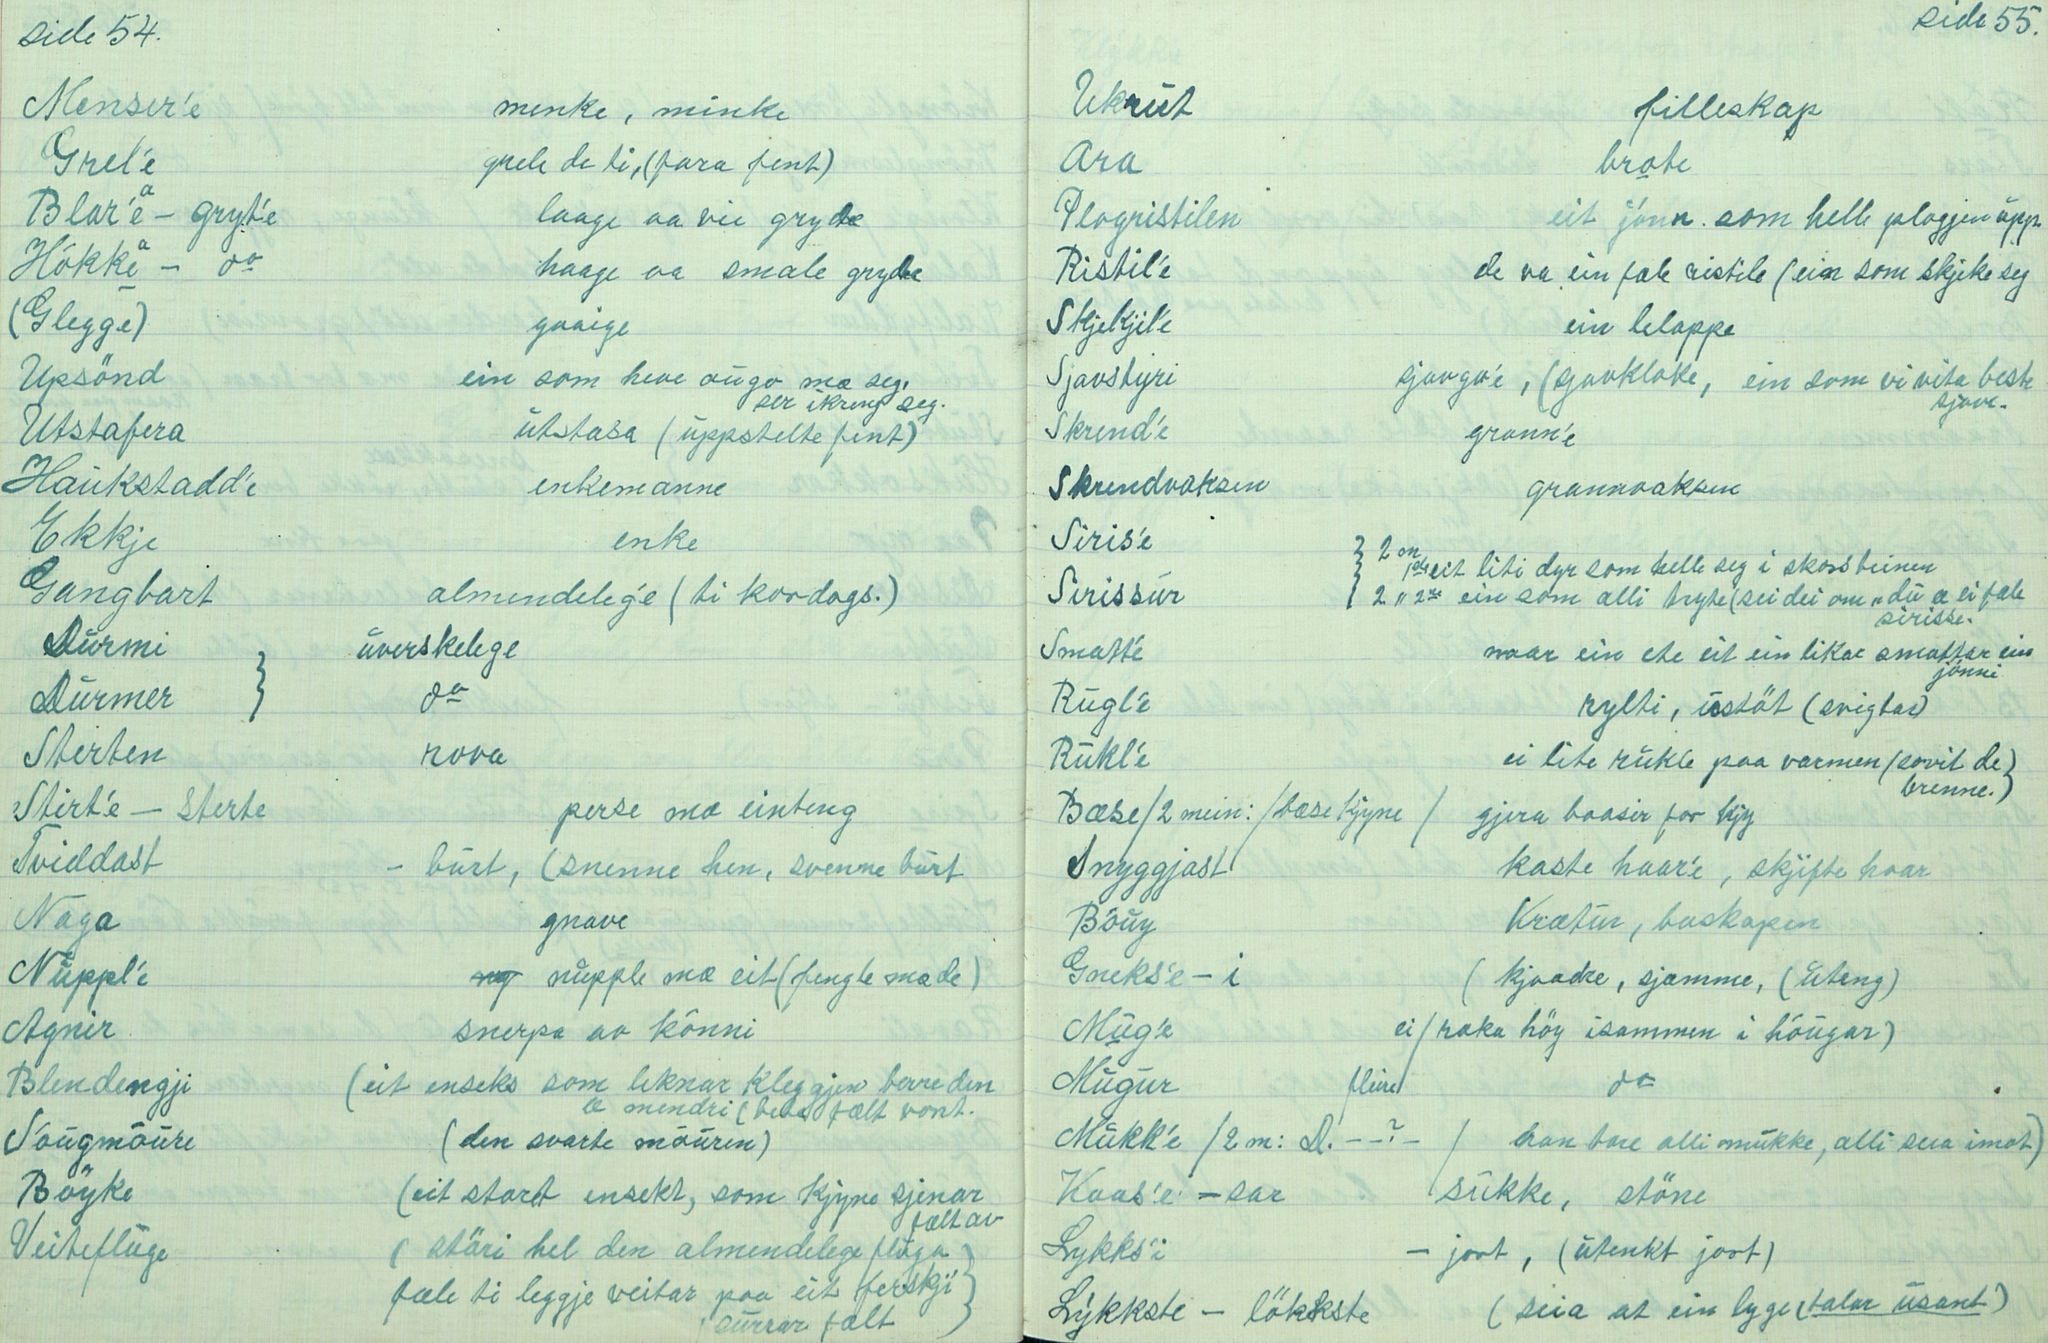 side 54.
Menser'e menke, minke
Grel'e grele de ti, (fara fent)
Blar'e a - gryt'e laage aa vie gryde
Hókke a - do haage aa smale gryde
(Glegge) gaaige
Upsönd ein som heve oûgo mæ seg,
ser ikreng seg.
Utstafera ûtstasa (ûppstelte fint)
Haûkstadd'e enkemanne
Ekkje enke
Gangbart almendeleg'e (ti kvardags.)
Dûrmi ûverskelege
Dûrmer do
Sterten rova
Stirt'e - sterte perse mæ einteng
Tviddast - bûrt, (snenne hen, svenne bûrt
Naga gnave
Nûppl'e nûpple mæ eit (fengle mæ de)
Agnir snerpa av kônni
Blendengji (eit enseks som leknar kleggjen berre den
æ mendri (bete fælt vont.
Sôûgmôûre (den svarte môûren)
Böyke (eit stort ensekt, som kjyne sjenar
fælt av
Veiteflûge (störi hel den almendelege flûga
fæle ti leggje veitar paa eit ferskji
sûrrar fælt
side 55.
Ukrût filleskap
Ara brote
Plogristilen eit jônn som helle plogjen ûpp
Ristil'e de va ein fæle ristile (ein som skjeke seg
Skjekjil'e ein lelappe
Sjavstýri sjavgv'e, (gavkloke, ein som vi vita beste
sjave.
Skrend'e grann'e
Skrendvaksen grannvaksen
Siris'e 2 m 1ste eit liti dyr som helle seg i skorsteinen
Sirissûr 2 " 2re ein som alli tryte (sei dei om "dû æ ei fæle
sirisse.
Smatt'e naar ein ete eit ein likar smattar ein
jönni
Rûgl'e rylti, ûstöt (svigtar)
Rûkl'e ei lite rûkle paa varmen (sovit de
brenne.)
Bæse /2 mein: /bæse kjyne / gjera baasir for kjy
Snyggjast kaste haar'e, skjifte haar
Bôûy Krætûr, buskapen
Gneks'e - i (kjaadre, sjamme, (ûteng)
Mûg'e ei /raka höy isammen i hôûgar)
Mûgûr fleire do
Mûkk'e /2 m: D. - - ? - / han tore alli mûkke, alli seia imot)
Kaas'e - sar sûkke, stöne
Lykks'i - jort, (ûtenkt jort)
Lýkkste - lökkste (seia at ein lyge (talar ûsant)